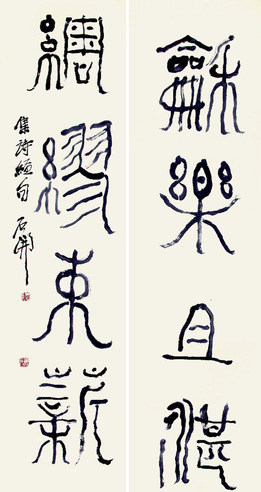 龢樂且湛
綢繆束薪
集詩經句 石開